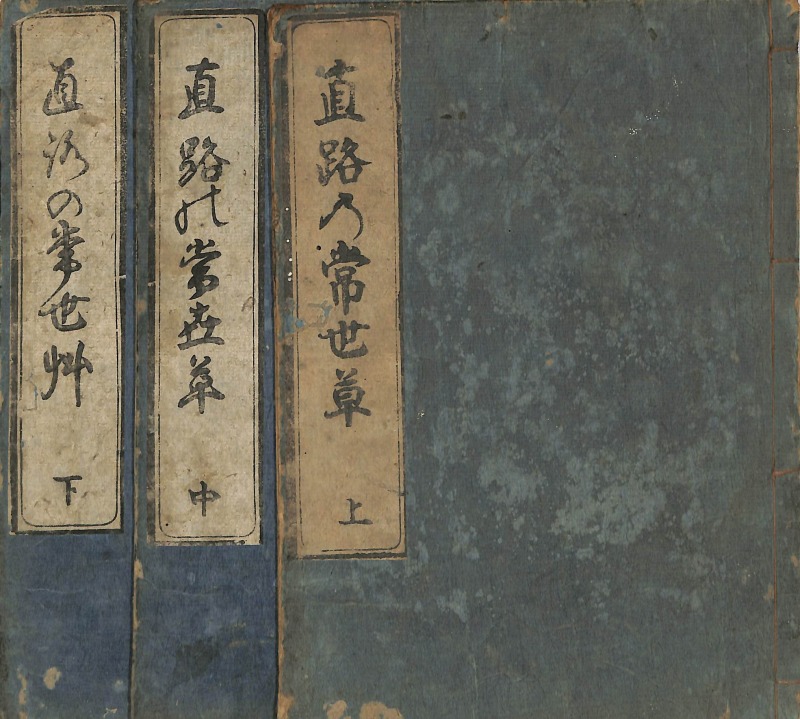 直路乃常世草 上
直路能常世草 中
直路の常世艸 下